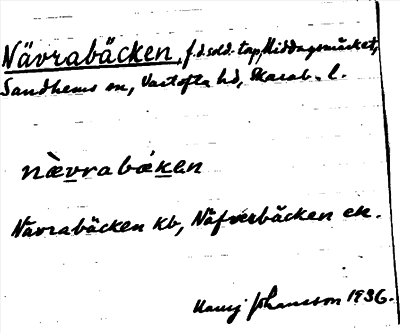 Nävrabäcken, f.d. sold. torp, Middagsmåset,
Sandhems sn, Vartofta hd, Skarab. l.
nævrabæken
Nävrabäcken kb, Näfverbäcken ek.
Harry Johansson 1936.